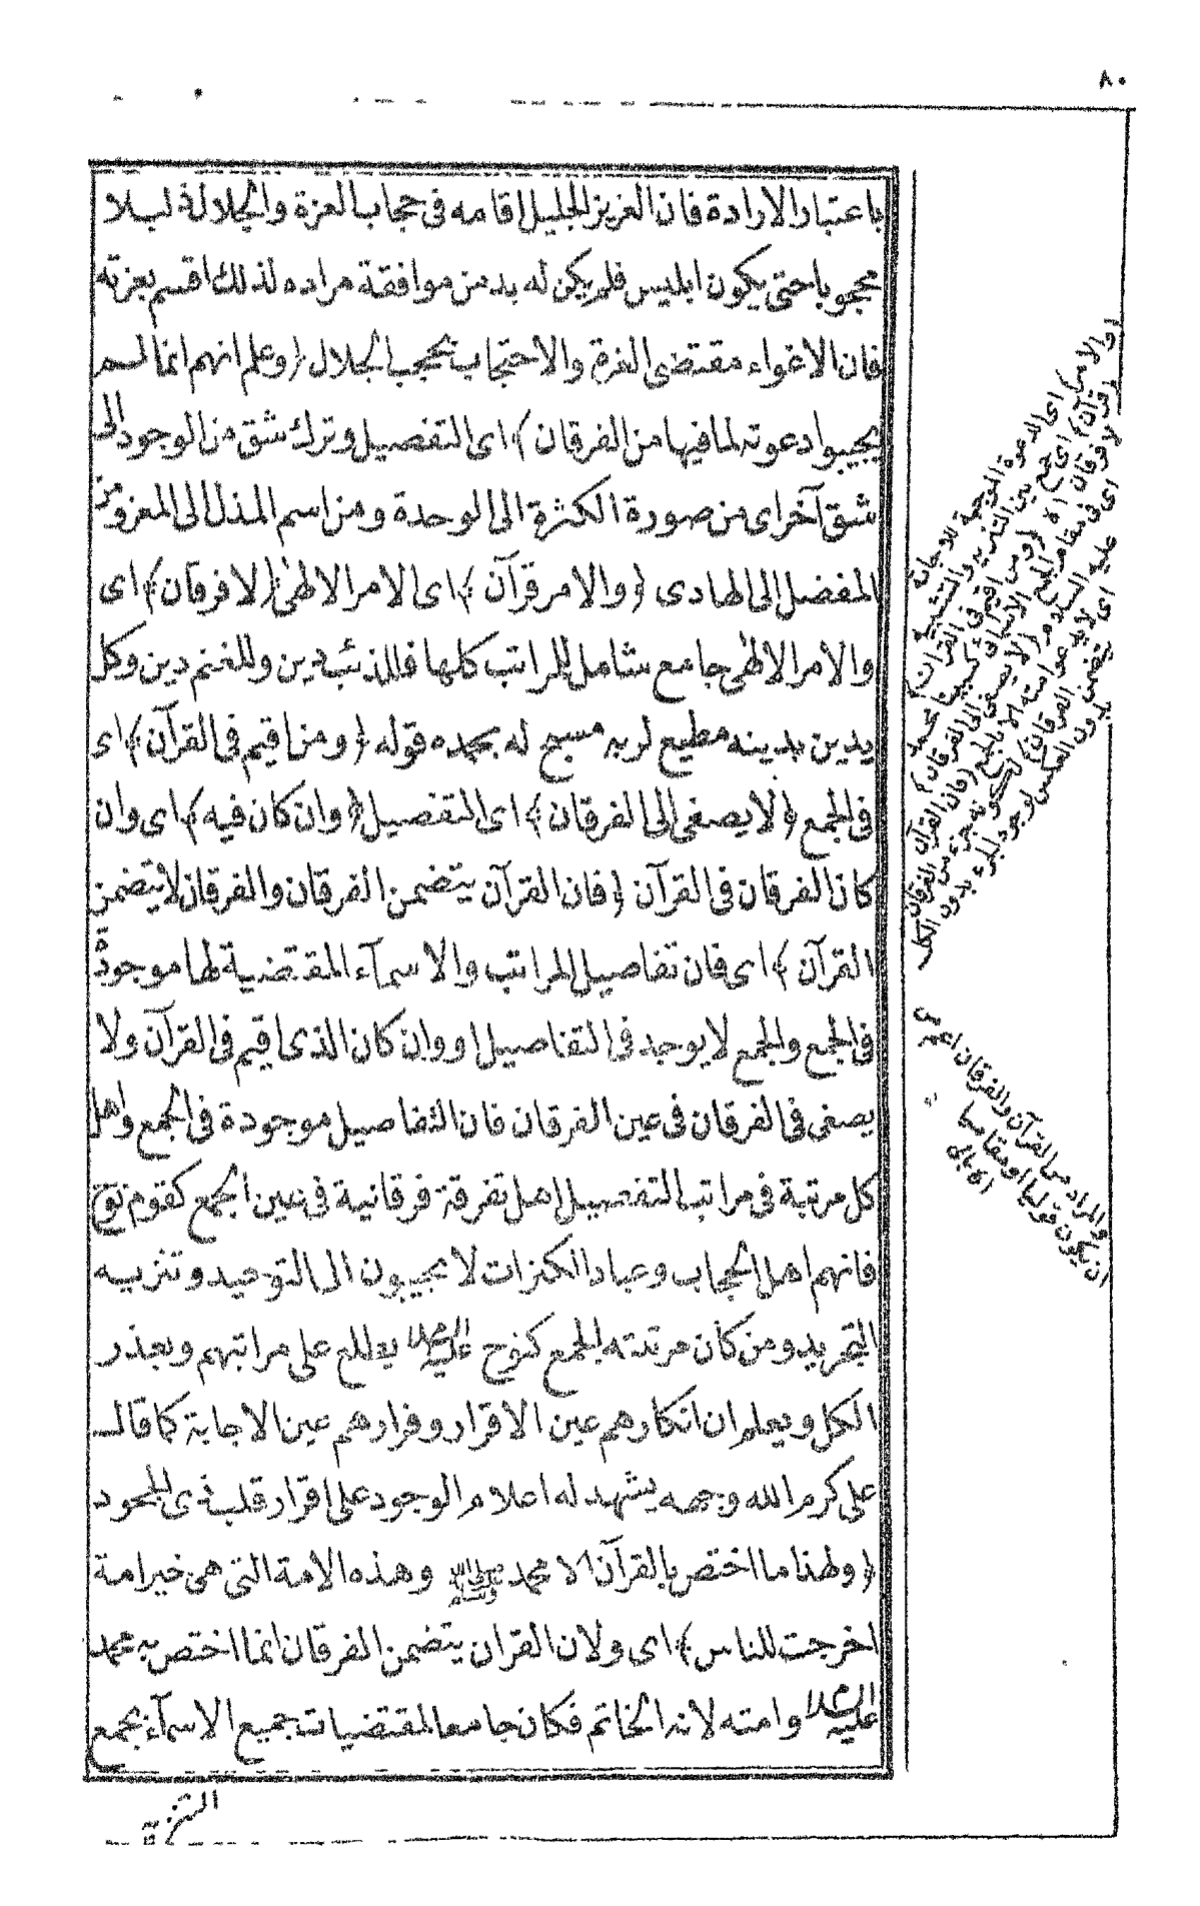 ٨٠
باعتبار الارادة فان العزيز الجليل اقامه في حجاب العزة والجلال ذليلا
محجوبا حتى يكون ابليس فلم يكن له بد من موافقة مراده لذلك اقسم بعزته
فان الاغواء مقتضى العزة والاحتجاب بحجب الجلال (وعلم انهم انما لم
يجيبوا دعوته لما فيها من الفرقان) اى التفصيل وترك شق من الوجود الى
شق آخر اى من صورة الكثرة الى الوحدة ومن اسم المذل الى المعز ومن
المفضل الى الهادى (والامر قرآن) اى الامر الالهى (لا فرقان) اى
والامر الالهى جامع شامل للمراتب كلها فللذئب دين وللغنم دين وكل
يدين بدينه مطيع لربه مسبح له بحمده قوله (ومن اقيم في القرآن) اى
في الجمع (لا يصغى الى الفرقان) اى التفصيل (وان كان فيه) اى وان
كان الفرقان في القرآن (فان القرآن يتضمن الفرقان والفرقان لا يتضمن
القرآن) اى فان تفاصيل المراتب والاسماء المقتضية لها موجودة
في الجمع والجمع لا يوجد في التفاصيل او وان كان الذى اقيم في القرآن ولا
يصغى في الفرقان في عين الفرقان فان التفاصيل موجودة في الجمع واهل
كل مرتبة في مراتب التفصيل اهل تفرقة فرقانية في عين الجمع كقوم نوح
فانهم اهل الحجاب وعباد الكثرات لا يجيبون الى التوحيد وتنزيه
التجريد ومن كان مرتبته الجمع كنوح عليه السلام يطلع على مراتبهم ويعذر
الكل ويعلم ان انكارهم عين الاقرار وفرارهم عين الاجابة كما قال
على كرم الله وجهه يشهد له اعلام الوجود على اقرار قلب ذى الجحود
(ولهذا ما اختص بالقرآن الا محمد صلى الله عليه وسلم وهذه الامة التى هى خير امة
اخرجت للناس) اى ولان القران يتضمن الفرقان انما اختص به محمد
عليه السلام وامته لانه الخاتم فكان جامعا لمقتضيات جميع الاسماء بجمع
والمراد من القرآن والفرقان اعم من
ان يكون قوليا او مقاميا
اه بالى